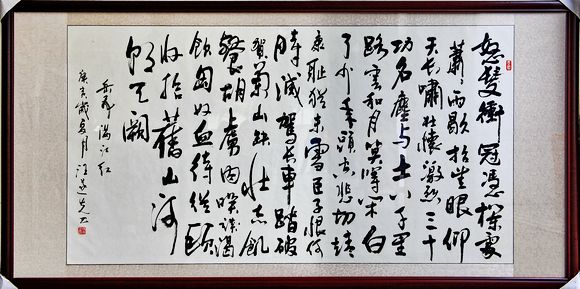 怒髮衝冠憑欄處
蕭々雨歇抬望眼仰
天長嘯壯懷激烈三十
功名塵與土八千里
路雲和月莫等閑白
了少年頭空悲切靖
康恥猶未雪臣子恨何
時滅駕長車踏破
賀蘭山缺壯志飢
餐胡虜肉笑談渴
飲匈奴血待從頭
收拾舊山河
朝天闕
岳飛滿江紅
庚寅歲夏月汪